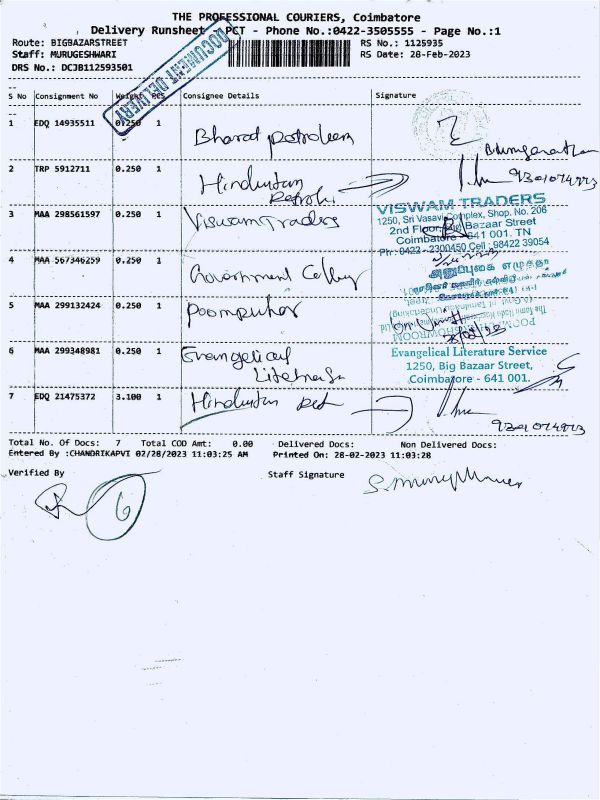 THE PROFESSIONAL COURIERS, Coimbatore
Delivery Runsheet - PCT - Phone No.:0422-3505555 - Page No.:1
Route: BIGBAZARSTREET
RS No.: 1125935
Staff: MURUGESHWARI
RS Date: 28-Feb-2023
DRS No.: DCJB112593501
DOCUMENT DELIVERY
S No Consignment No Weight PCS Consignee Details Signature
1 EDQ 14935511 0.250 1 Bharat petroleum
2 TRP 5912711 0.250 1 Hindustan
3 MAA 298561597 0.250 1 Viswam Traders
VISWAM TRADERS
1250, Sri Vasavi Complex, Shop. No. 206
2nd Floor, Big Bazaar Street
Coimbatore - 641 001. TN
Phr: 0422 - 2300450 Cell : 98422 39054
4 MAA 567346259 0.250 1 Government
5 MAA 299132424 0.250 1 Poompuhar
6 MAA 299348981 0.250 1 Evangelical
Evangelical Literature Service
1250, Big Bazaar Street,
Coimbatore - 641 001.
7 EDQ 21475372 3.100 1 Hindustan Pet
Total No. Of Docs: 7 Total COD Amt: 0.00 Delivered Docs: Non Delivered Docs:
Entered By :CHANDRIKAPVI 02/28/2023 11:03:25 AM Printed On: 28-02-2023 11:03:28
Verified By
Staff Signature